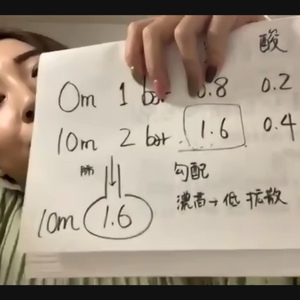 酸
0m 1 bar 0.8 0.2
10m 2 bar 1.6 0.4
肺
勾配
濃高→低 拡散
10m 1.6